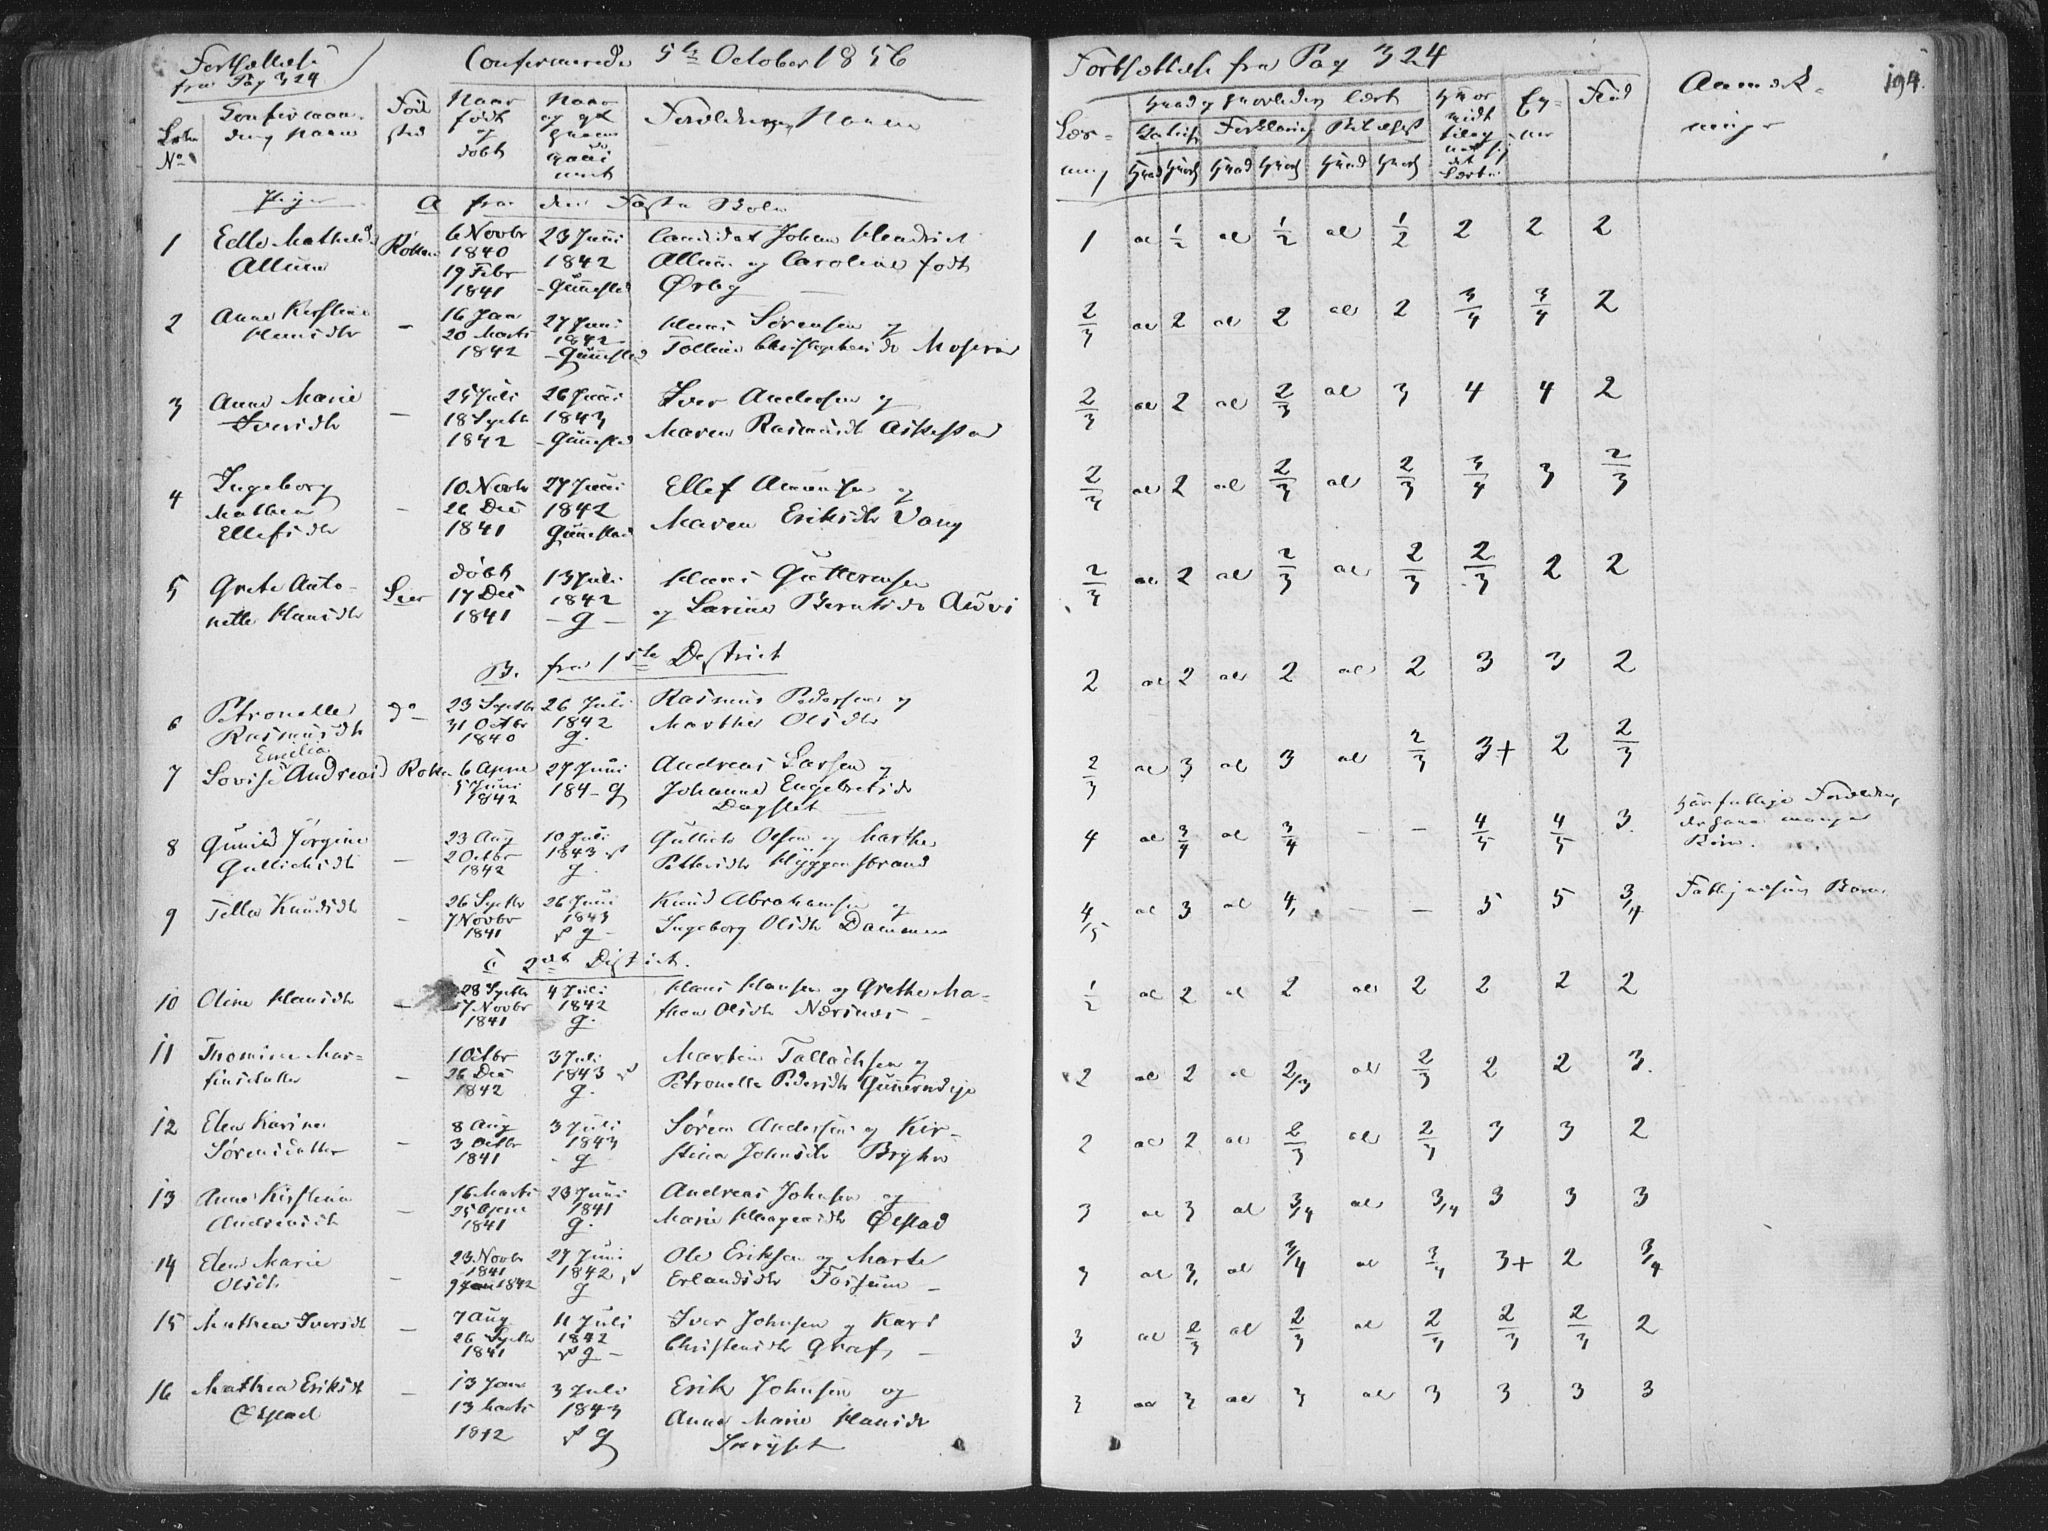 Fortsættelse
fra Pag 324
Confirmerede 5te October 1856
Løbe
No
Confirman-
dens Navn
Føde
sted
Naar
født
og
døbt
Naar
og af
hvem
vacci
neret
Forældrenes Navne
Piger
A fra den Faste Skole
1 Edle Mathilde Røken 6 Novbr 23 Juni Candidat Johan Hendrich
Allum 1840 1842 Allum og Caroline født
19 Febr 1841 Gunnestad Ørbeg
2 Anne Kirstine — 16 Jan 27 Juni Hans Sørensen og
Hansdtr 20 Marts 1842 1842 Gunnestad Tolline Christophersdr
3 Anne Marie — 25 Juli 26 Juni Iver Andersen og
Iversdtr 18 Septbr 1843
1842 Gunnestad Maren Rasmusdtr Askestad
4 Ingeborg — 10 Novbr 27 Juni Ellef Amundsen og
Mathea 26 Dec 1842
Ellefsdtr 1841 Gunnestad Maren Eriksdtr Vang
5 Grete Anto- Lier døbt 13 Juli Hans Guttormsen
nette Hansdtr 17 Dec 1842 og Karine Berntsdr Auvi
1841 — G —
B. fra 1ste District
6 Petronelle do 23 Septbr 26 Juli Rasmus Pedersen og
Rasmusdtr 31 Octbr 1842 Marthe Olsdtr
1840 G.
7 Lovise Emilia Andreasd Røken 6 April 27 Juni Andreas Larsen og
5 Juni 184- G Johanne Engebretsdr
1842 Dagslet
8 Gunild Jørgine — 23 Aug 10 Juli Gullich Olsen og Marthe
Gullichsdtr 2 Octbr 1843 Pettersdtr Hyggenstrand
1842 G.
9 Tilla Knudsdtr — 26 Septbr 26 Juni Knud Abrahamsen og
7 Novbr 1843 Ingeborg Olsdtr Dammen
1841 G —
C 2det District.
10 Oline Hansdtr — 28 Septbr 4 Juli Hans Hansen og Grethe Ma-
7 Novbr 1842 thea Olsdtr Nærsnes —
1841 G.
11 Thomine Mar- — 1 Octbr 3 Juli Martin Tallachsen og
tinsdatter 26 Dec 1843 Petronelle Pedersdtr
1842 G.
12 Elen Karine — 8 Aug 3 Juli Søren Andersen og Kir-
Sørensdatter 3 Octbr 1843 stine Johnsdtr
1841 G
13 Anne Kirstine — 16 Marts 23 Juni Andreas Johnsen og
Andreasdtr 25 April 1841 Marie Haagensdtr Østad
1841 G.
14 Elen Marie — 23 Novbr 27 Juni Ole Eriksen og Marte
Olsdtr 1841 1842 Erlandsdtr Fossum —
9 Jan 1842 G
15 Mathea Iversdtr — 7 Aug 11 Juli Iver Johnsen og Kari
26 Septbr 1842 Christensdtr Graf —
1841 G —
16 Mathea Eriksdt — 13 Jan 3 Juli Erik Johnsen og
Østad 13 Marts 1843 Anne Marie Hansdr
1842 G
Fortsættelse fra Pag 324
194.
Læs-
ning
Hvad og hvorledes lært
Forklaring
Hvad Hvor Hvad Hvor Hvad Hvor
Ev-
ner
Flid
Anmærk-
ninger
1 al 1/2 al 1/2 al 1/2 2 2 2
2/3 al 2 al 2 al 2 3/4 3/4 2
2/3 al 2 al 2/3 al 3 4 4 2
2/3 al 2 al 2/3 al 2/3 3/4 3 2/3
2/3 al 2 al 2/3 al 2/3 2/3 2 2
2 al 2 al 2 al 2 3 3 2
2/3 al 3 al 3 al 2/3 3+ 2 2/3
4 al 3/4 al 3/4 — — 4/5 4/5 3. Huusfattige Forældre,
der have mange
Børn.
4/5 al 3 al 4, — — 5 5 3/4 Barn
1/2 al 2 al 2 al 2 2 2 2
2 al 2 al 2/3 al 2/3 2 2 3.
2 al 2 al 2/3 al 2/3 3 3 2
3 al 3 al 3/4 al 3/4 3 3 3
3 al 3, al 3/4 al 3/4 3+ 2 3/4
3 al 2/3 al 2/3 al 2/3 2/3 2/3 2
3 al 3 al 3 al 3 3 3 3